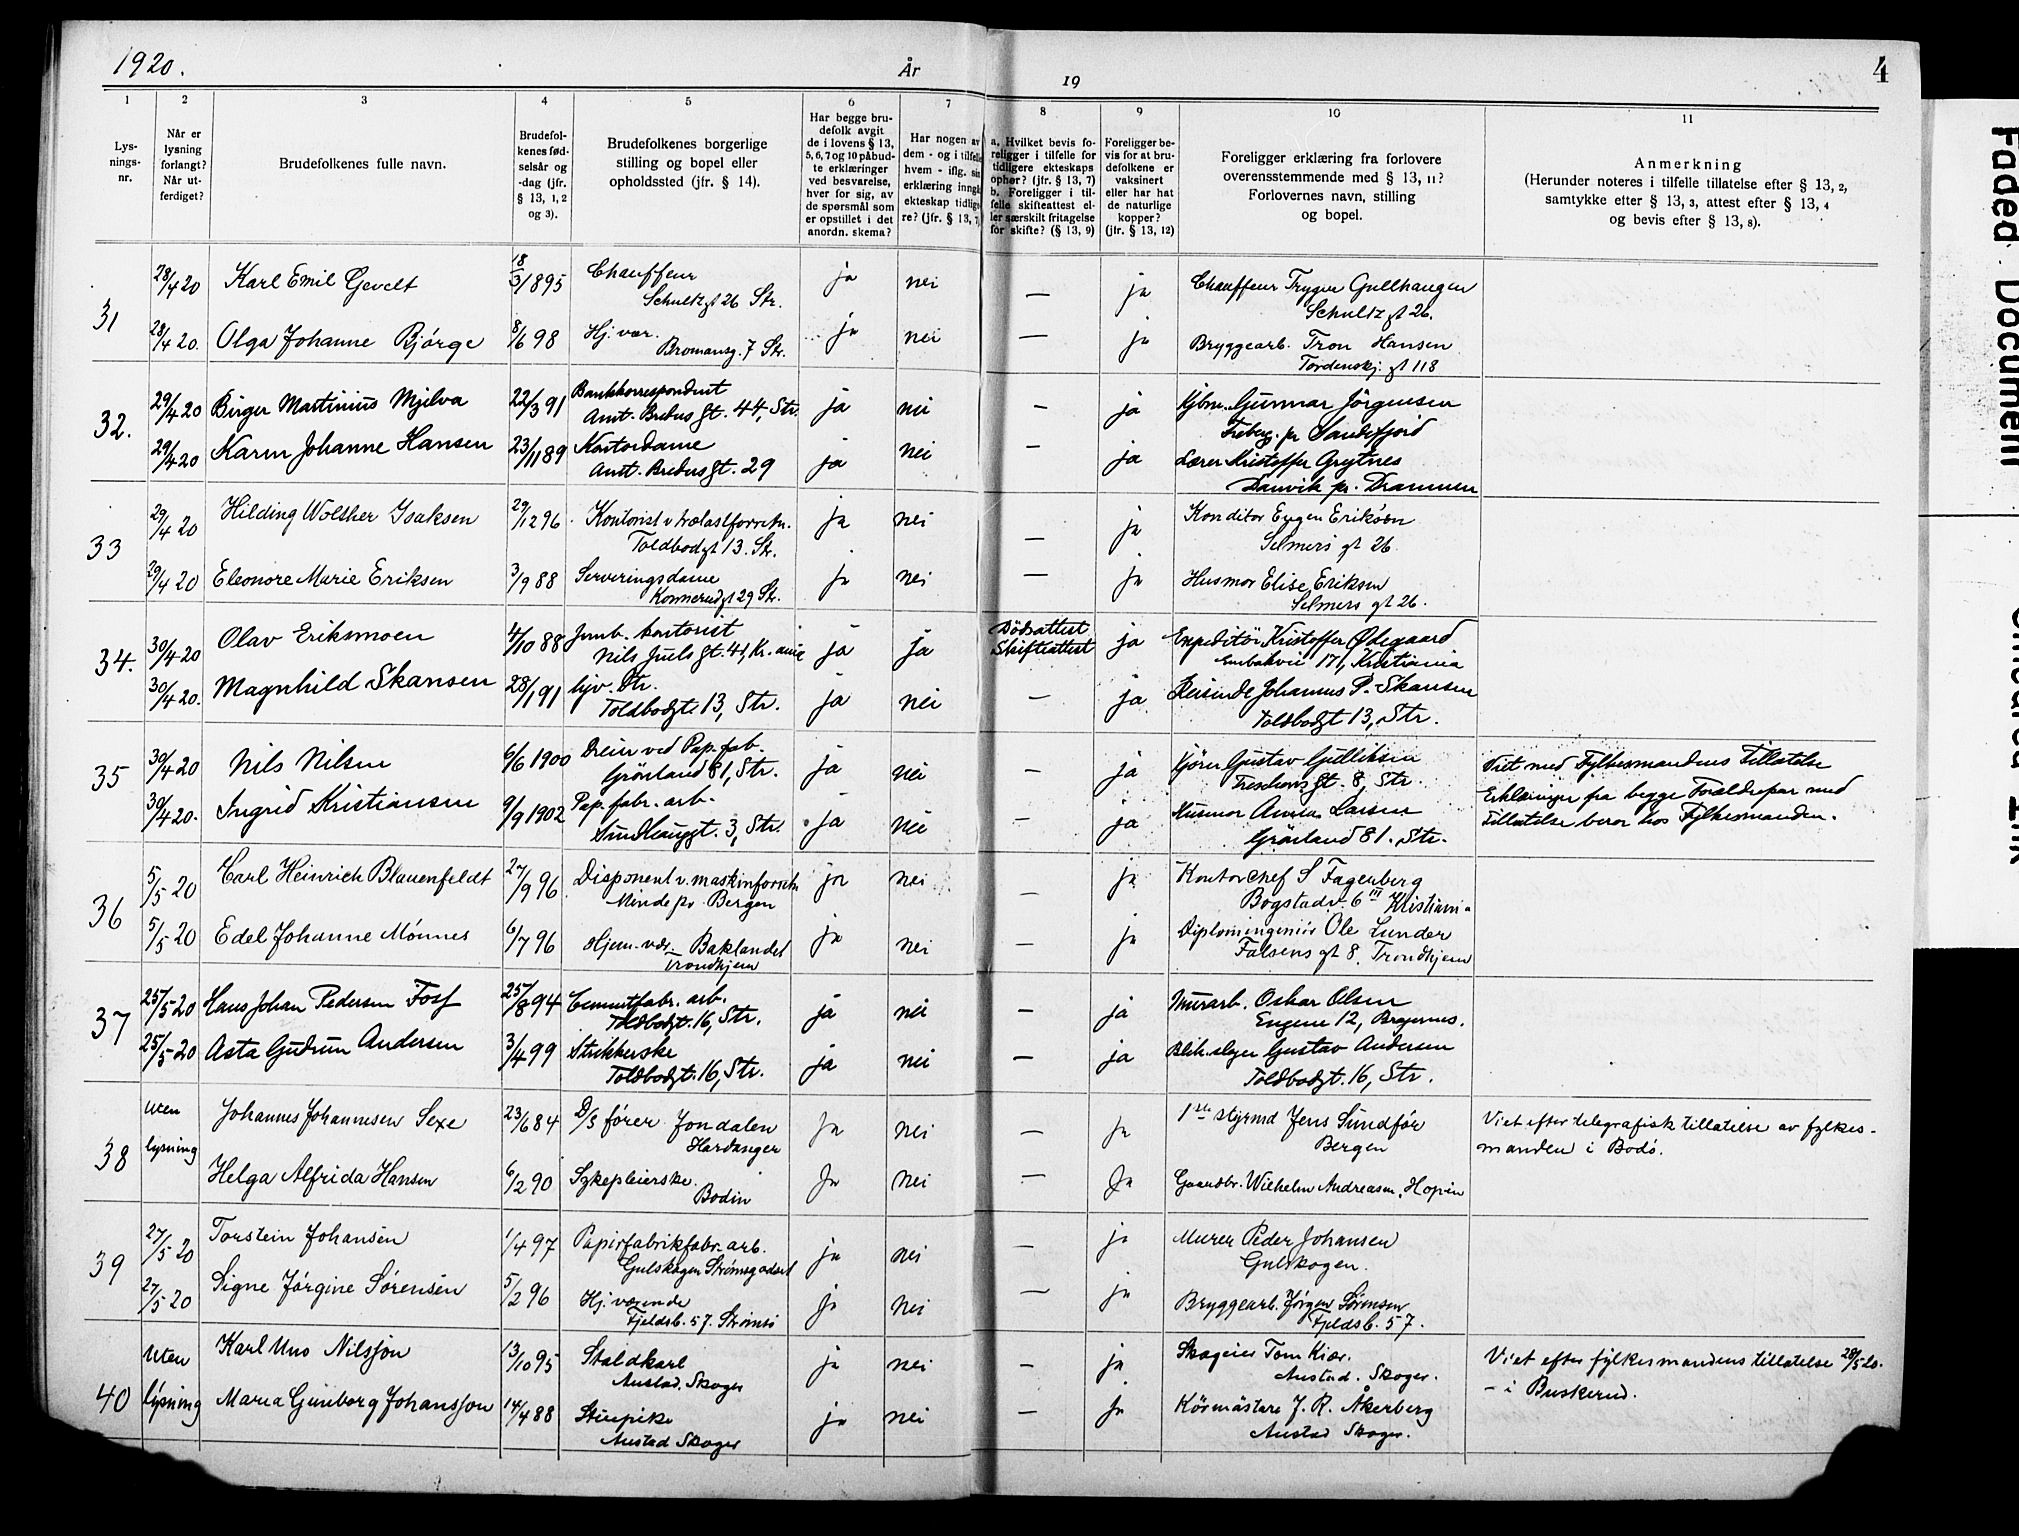 1920.
År
19
4
1 2 3 4 5 6 7 8 9 10 11
Lys-
nings-
nr.
Når er
lysning
forlangt?
Når ut-
ferdiget?
Brudefolkenes fulle navn.
Brudefol-
kenes fød-
selsår og
-dag (jfr.
§ 13, 1, 2
og 3).
Brudefolkenes borgerlige
stilling og bopel eller
opholdssted (jfr. § 14).
Har begge bru-
defolk avgit
de i lovens § 13,
5, 6, 7 og 10 påbud-
te erklæringer
ved besvarelse,
hver for sig, av
de spørsmål som
er opstillet i det
anordn. skema?
Har nogen av
dem - og i tilfelle
hvem - iflg. sin
erklæring inngå
ekteskap tidlige-
re? (jfr. § 13, 7
a. Hvilket bevis fo-
religger i tilfelle for
tidligere ekteskaps
ophør? (jfr. § 13, 7)
b. Foreligger i til-
felle skifteattest el-
ler særskilt fritagelse
for skifte? (§ 13, 9)
Foreligger be-
vis for at bru-
defolkene er
vaksinert
eller har hat
de naturlige
kopper?
(jfr. § 13, 12)
Foreligger erklæring fra forlovere
overensstemmende med § 13, 11?
Forlovernes navn, stilling
og bopel.
Anmerkning
(Herunder noteres i tilfelle tillatelse efter § 13, 2,
samtykke efter § 13, 3, attest efter § 13, 4
og bevis efter § 13, 8).
31
28/4 20 Karl Emil Gevelt 18/3 1895 Chauffeur ja nei — ja Chauffeur Trygve Gullhaugen
Schultz gt 26 Str. Schultz gt 26.
28/4 20. Olga Johanne Bjørge 8/6 98 Hj. vær. ja nei — ja Bryggearb. Tron Hansen
Bromansg. 7 Str. Tordenskj. gt 118
32.
29/4 20 Birger Martinius Mjelva 22/3 91 Bankkorrespondent ja nei — ja Kjbm. Gunnar Jörgensen
Amt. Bredes gt. 44, Str. pr Sandefjord
29/4 20 Karen Johanne Hansen 23/11 89 Kontordame ja nei — ja Lærer Kristoffer Grytnes
Amt. Bredes gt. 29 Danvik pr. Drammen
33
29/4 20 Hilding Wolther Isaksen 29/12 96 Kontorist v trælastforretn. ja nei — ja Konditor Eugen Eriksen
Toldbodgt 13. Str. Selmers gt 26
29/4 20 Eleonore Marie Eriksen 3/9 88 Serveringsdame ja nei — ja Husmor Elise Eriksen
Konnerudgt 29 Str. Selmers gt 26.
34.
30/4 20 Olav Eriksmoen 4/10 88 Jernb. kontorist ja ja Dödsattest ja Expeditör Kristoffer Ødegaard
Nils Juels gt. 41, Kr.ania Skifteattest 17, Kristiania
30/4 20. Magnhild Skansen 28/1 91 hjv. Str. ja nei — ja Johannes P. Skansen
Toldbodgt 13, Str. Toldbodgt 13, Str.
35
30/4 20 Nils Nilsen 6/6 1900 Dreier ved Pap. fab. ja nei — ja Kjörer Gustav Gulliksen Viet med Fylkesmandens Tillatelse
Grönland 81, Str. Treschows gt. 8, Str.
30/4 20. Ingrid Kristiansen 9/9 1902 Pap. fabr. arb. ja nei — ja Husmor Larsen Erklæringer fra begge Forældrepar med
Sundhauggt. 3, Str. Grönland 81. Str. Tillatelse beror hos Fylkesmanden.
36
5/5 20 Carl Heinrich Blauenfeldt 27/9 96 Disponent v. maskinforretn ja nei — ja Kontorchef S Fagerberg
Minde pr. Bergen Bogstadv. 6 III Kristiania
5/5 20 Edel Johanne Mönnes 6/7 96 Hjem. vær. Baklandet ja nei — ja Diplomingeniör Ole Lunder
Trondhjem Falsens gt 8. Trondhjem
37
25/5 20 Hans Johan Pedersen Foss 25/8 94 Cementfabr. arb. ja nei — ja Murarb. Oskar Olsen
Toldbodgt. 16, Str. Engene 12, Bragernes.
25/5 20 Asta Gudrun Andersen 3/4 99 Strikkerske ja nei — ja Blik.slager Gustav Andersen
Toldbodgt. 16, Str. Toldbodgt. 16, Str.
38
uten Johannes Johannesen Sexe 23/6 84 D/S förer Jondalen Ja nei — Ja 1ste styrmd Jens Sundför Viet efter telegrafisk tillatelse av fylkes-
lysning Hardanger Bergen manden i Bodö.
Helga Alfrida Hansen 6/2 90 Sykepleierske. Ja nei — Ja Gaardbr. Wilhelm Andreasen, Hopen
Bodin
39
27/5 20 Torstein Johansen 1/4 97 Papirfabrikfabr. arb. ja nei — ja Murer Peder Johansen
Gulskogen Strømsgodset Gulskogen.
27/5 20 Signe Jørgine Sørensen 5/2 96 Hj. værende ja nei — ja Bryggearb. Jörgen Sörensen
Fjeldsb. 57. Strömsö Fjeldsb. 57.
40
Uten Karl Uno Nilsson 13/10 95 Staldkarl ja nei — ja Skogeier Tom Kiær. Viet efter fylkesmandens tillatelse 28/5 20.
Austad. Skoger Austad. Skoger. — i Buskerud.
lysning Maria Gunborg Johansson 14/4 88 Stuepike ja nei — Ja Körmästare J. R. Åkerberg
Austad Skoger Austad Skoger.
Faded Document